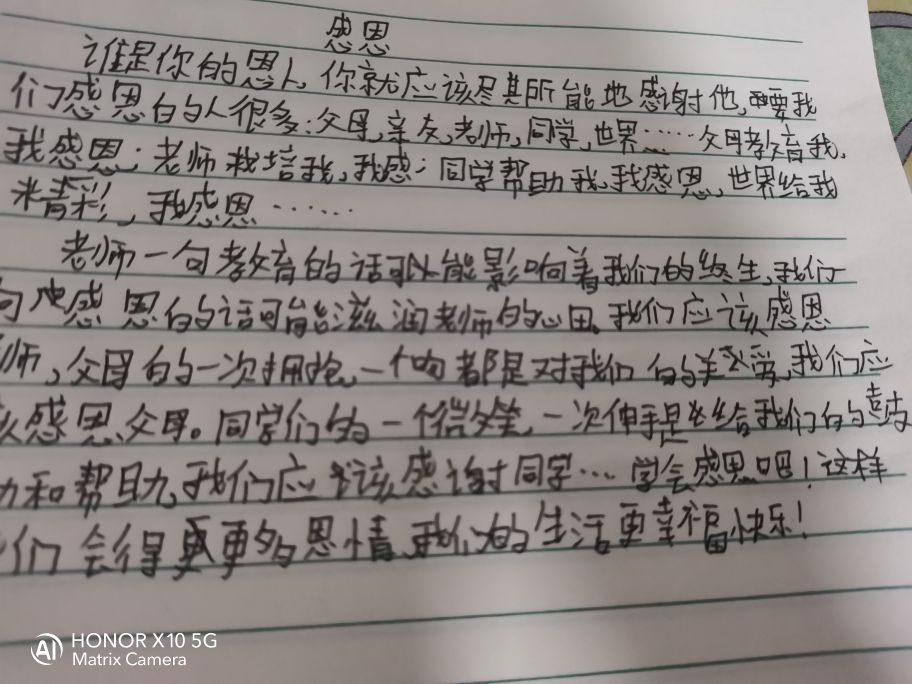 感恩
谁是你的恩人,你就应该尽其所能地感谢他,需要我
们感恩的人很多:父母,亲友,老师,同学,世界……父母教育我,
我感恩;老师栽培我,我感;同学帮助我,我感恩,世界给我
精彩,我感恩……
老师一句教育的话可以能影响着我们的终生,我们一
句感恩的话可能滋润老师的心田,我们应该感恩
师,父母的一次拥抱,一个吻都是对我们的关爱,我们应
感恩父母。同学们的一个微笑,一次伸手是给我们的鼓
和帮助,我们应该感谢同学…学会感恩吧!这样
们会得更更多的恩情,我们的生活更幸福快乐!
HONOR X10 5G
Matrix Camera